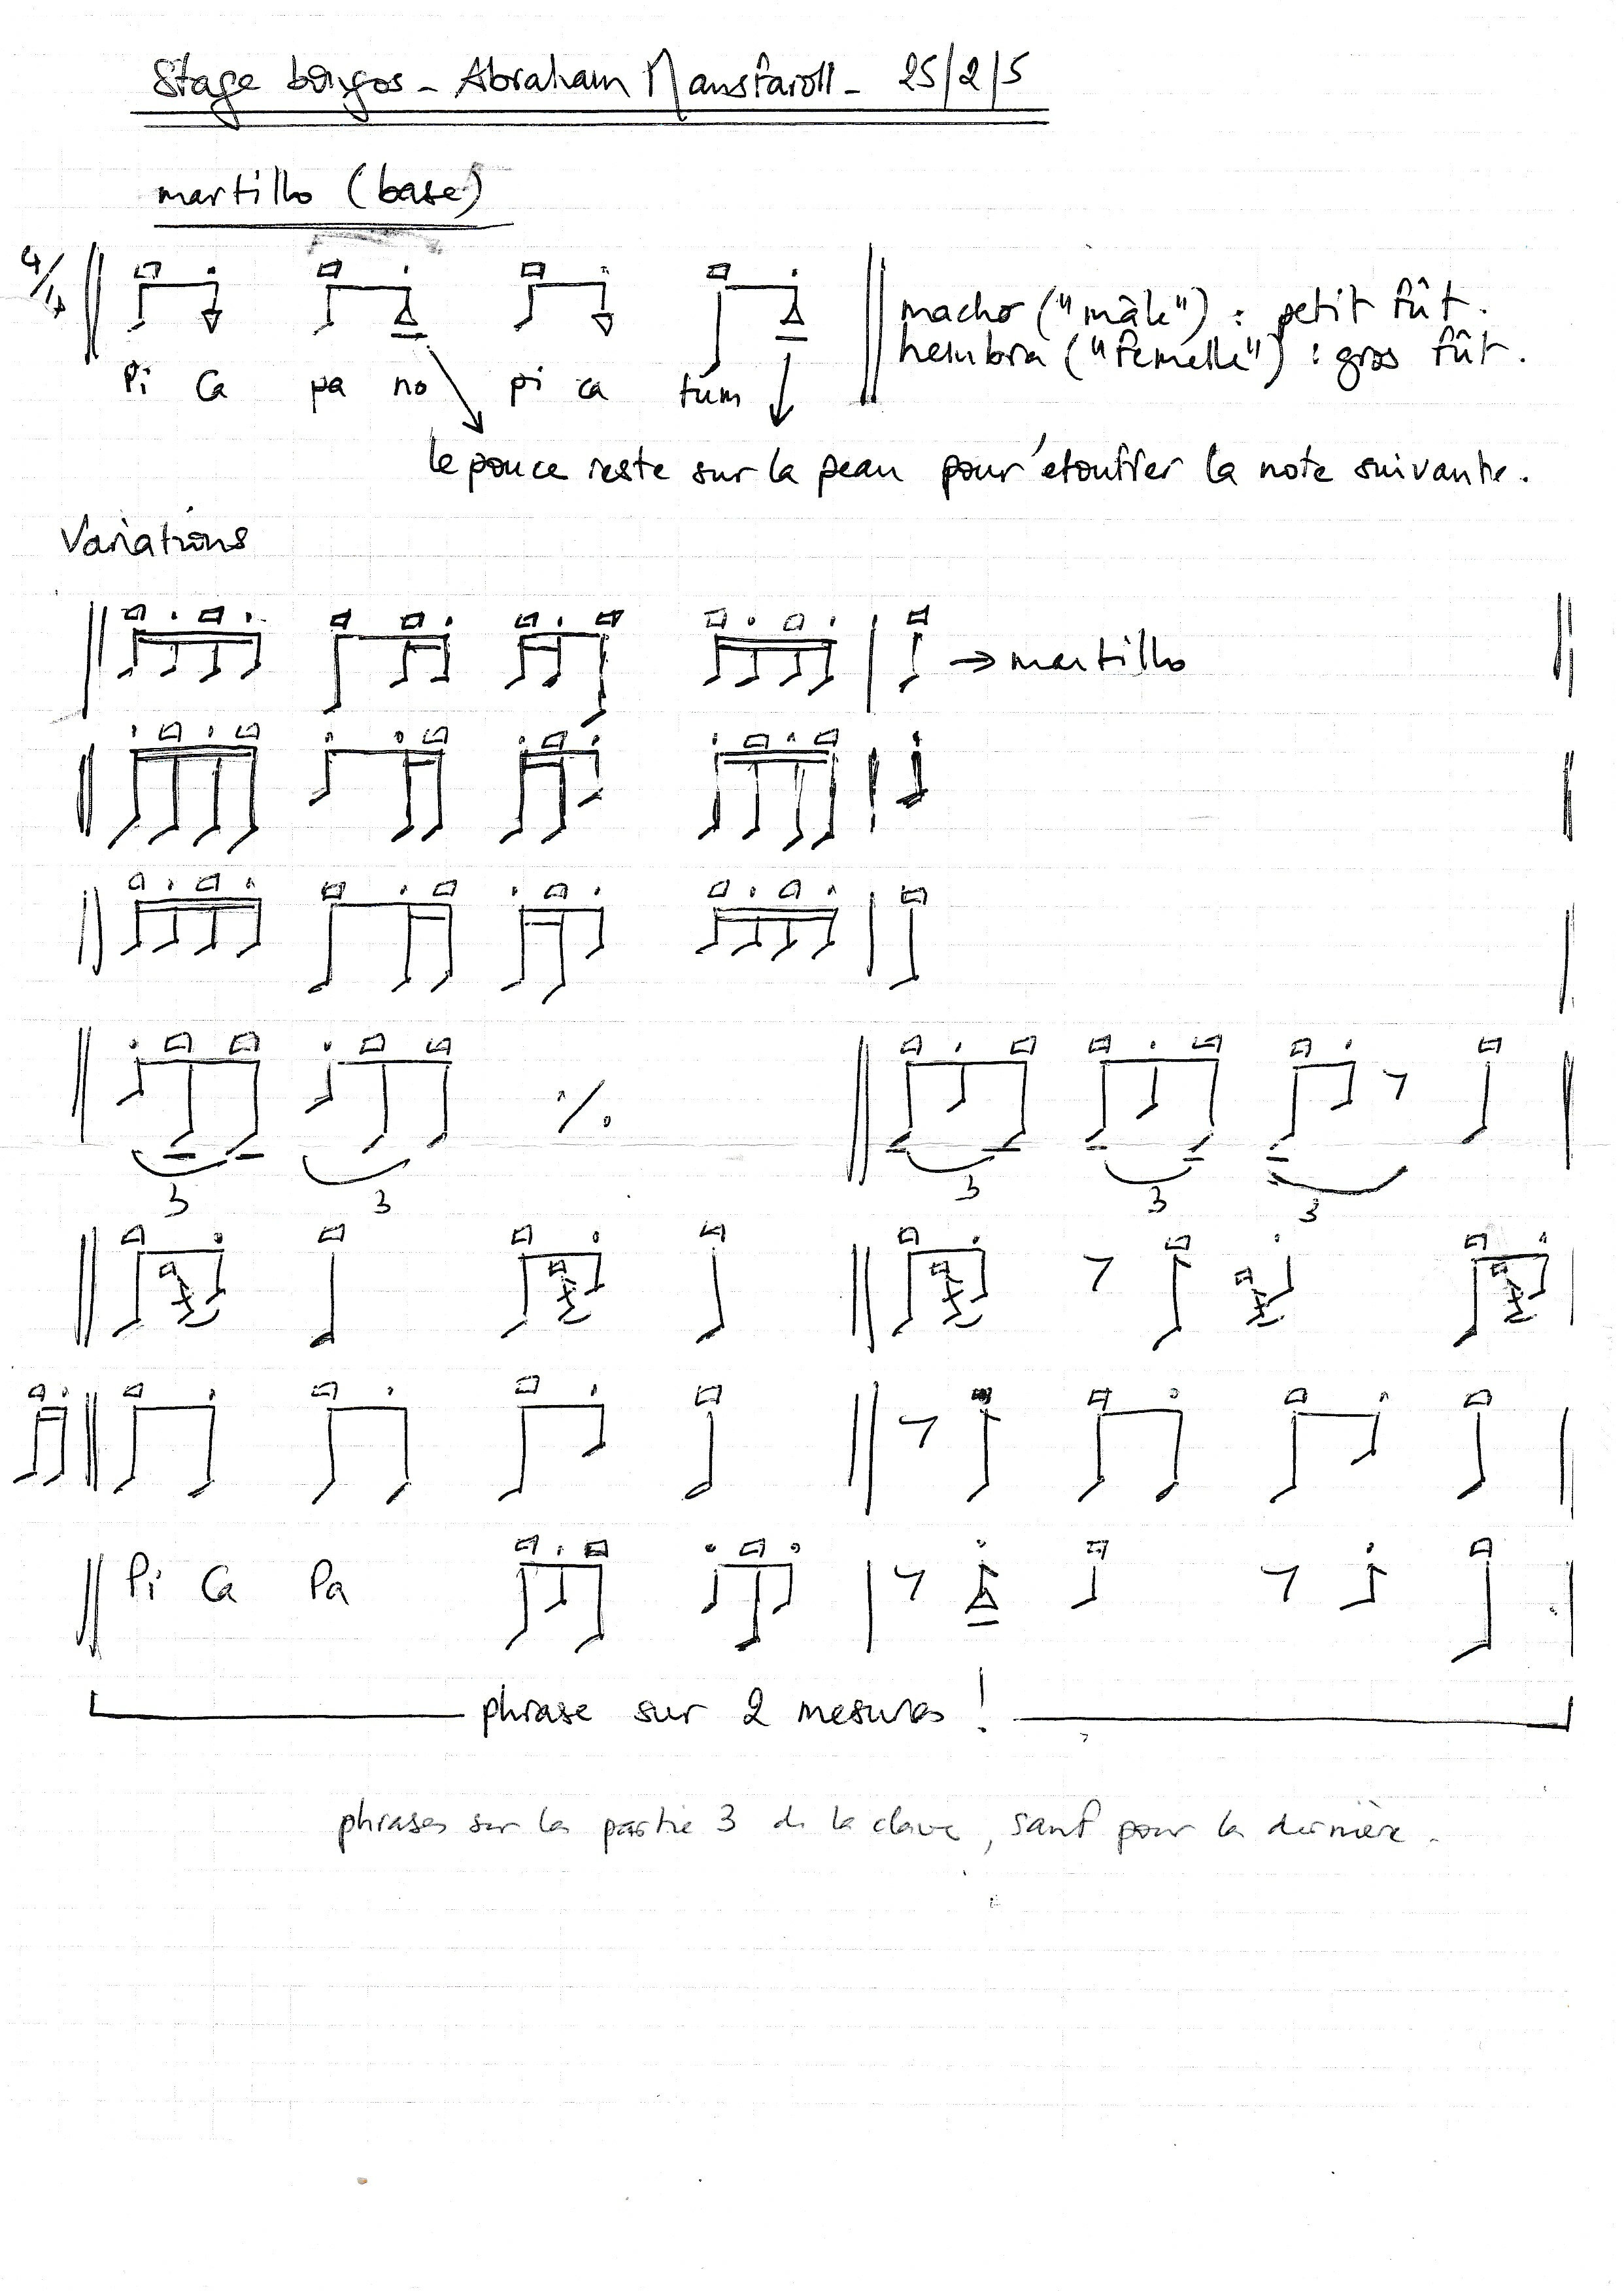 Stage bongos - Abraham Mansfaroll - 25/2/5
martillo (base)
4/4
macho ("mâle") : petit fût.
hembra ("femelle") : gros fût.
Pi Ca pa no pi ca tum
le pouce reste sur la peau pour étouffer la note suivante.
Variations
→ martillo
3 3 3 3 3
Pi Ca Pa
phrase sur 2 mesures !
phrases sur la partie 3 de la clave, sauf pour la dernière.